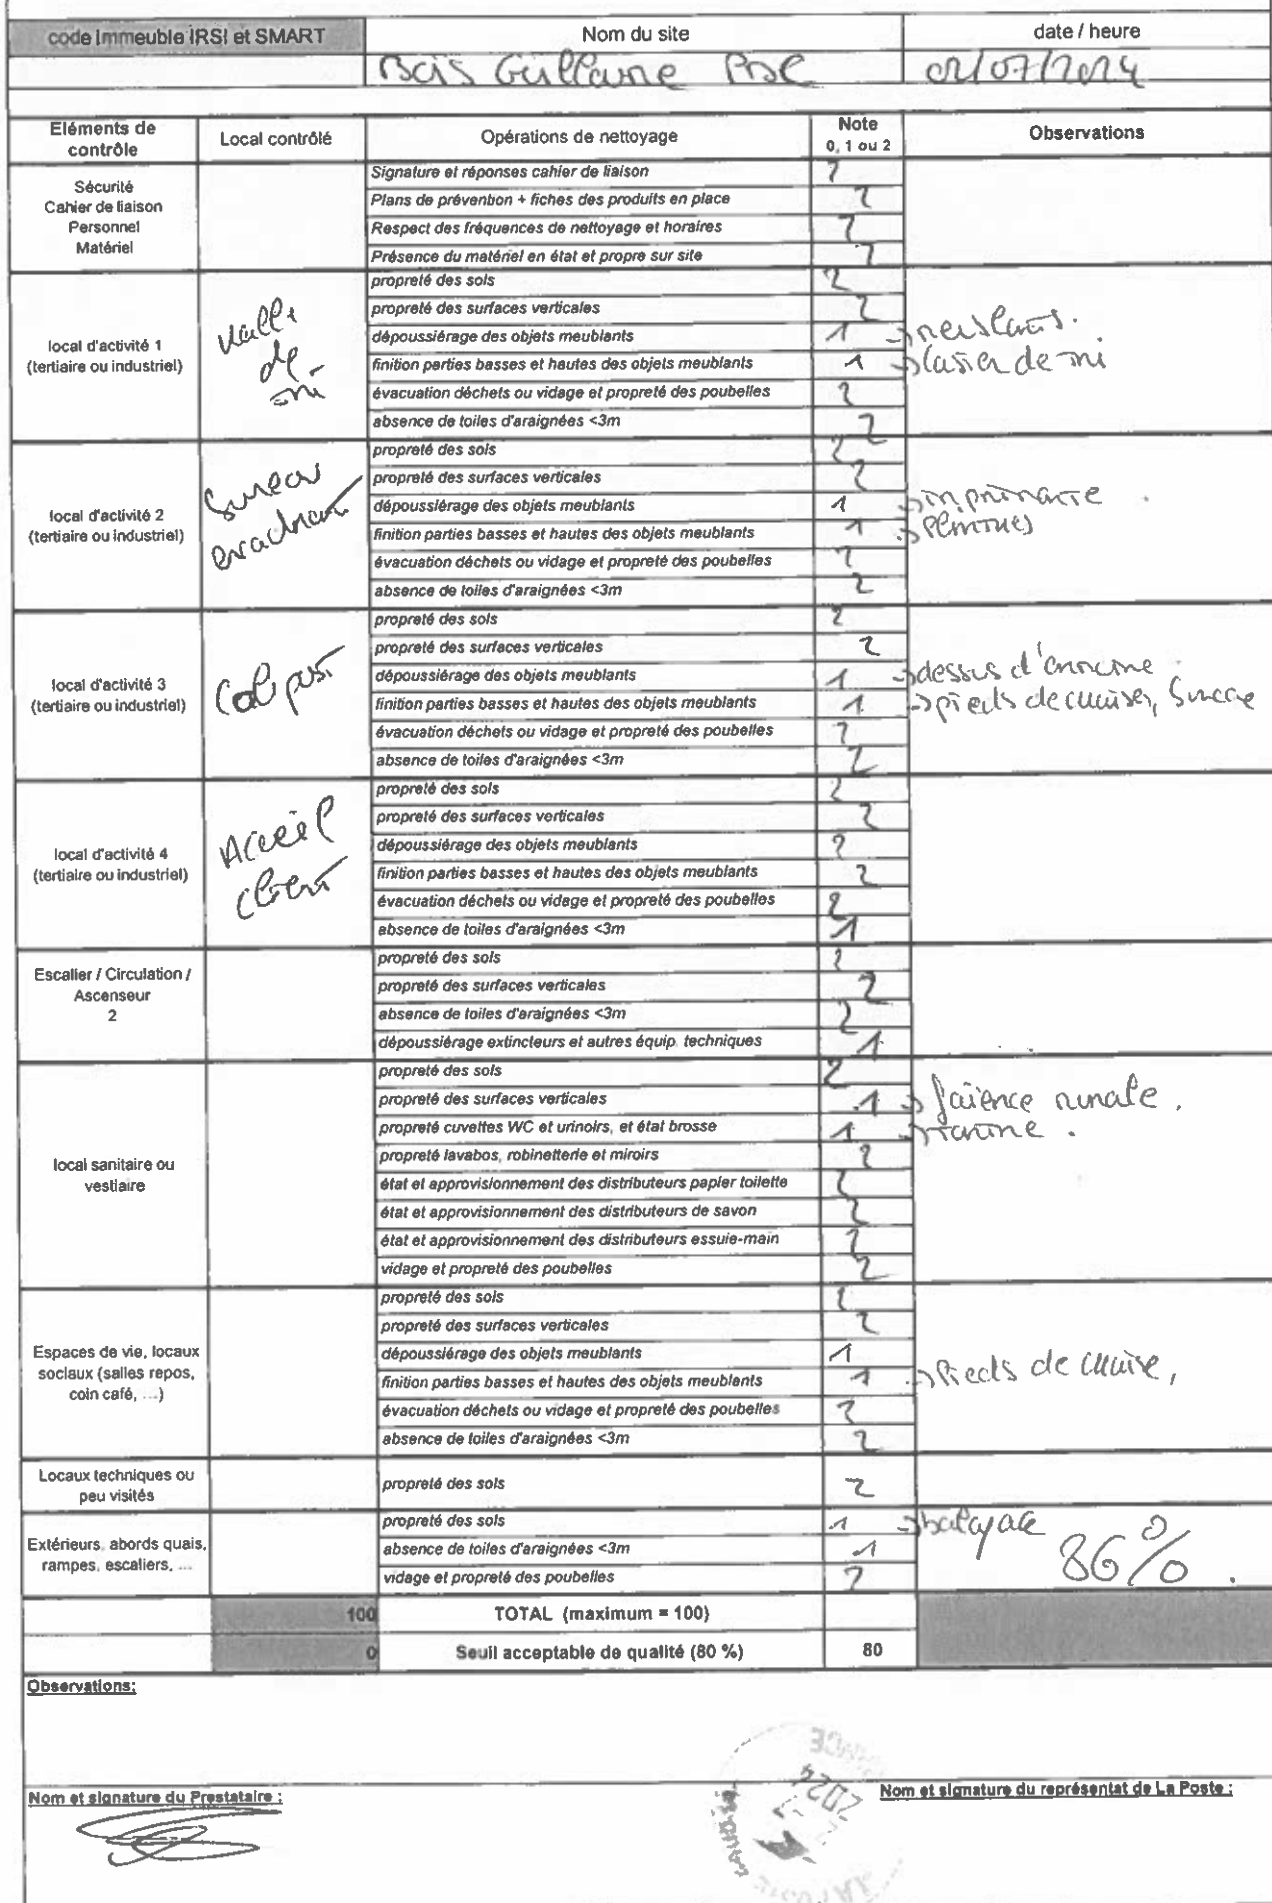 code Immeuble IRSI et SMART Nom du site date / heure
Bois Guillaume PDC 02/07/2024
Eléments de contrôle Local contrôlé Opérations de nettoyage Note 0, 1 ou 2 Observations
Sécurité
Cahier de liaison
Personnel
Matériel
Signature et réponses cahier de liaison 2
Plans de prévention + fiches des produits en place 2
Respect des fréquences de nettoyage et horaires 2
Présence du matériel en état et propre sur site 2
local d'activité 1
(tertiaire ou industriel)
de
tri
propreté des sols 2
propreté des surfaces verticales 2
dépoussiérage des objets meublants 1
finition parties basses et hautes des objets meublants 1 → casier de tri
évacuation déchets ou vidage et propreté des poubelles 2
absence de toiles d'araignées <3m 2
local d'activité 2
(tertiaire ou industriel)
Bureau
propreté des sols 2
propreté des surfaces verticales 2
dépoussiérage des objets meublants 1 → imprimante
finition parties basses et hautes des objets meublants 1
évacuation déchets ou vidage et propreté des poubelles 2
absence de toiles d'araignées <3m 2
local d'activité 3
(tertiaire ou industriel)
Coliposte
propreté des sols 2
propreté des surfaces verticales 2
dépoussiérage des objets meublants 1 → dessus d'armoire
finition parties basses et hautes des objets meublants 1 → pieds de chaises, bureau
évacuation déchets ou vidage et propreté des poubelles 2
absence de toiles d'araignées <3m 2
local d'activité 4
(tertiaire ou industriel)
Accueil
client
propreté des sols 2
propreté des surfaces verticales 2
dépoussiérage des objets meublants 2
finition parties basses et hautes des objets meublants 2
évacuation déchets ou vidage et propreté des poubelles 2
absence de toiles d'araignées <3m 1
Escalier / Circulation /
Ascenseur
2
propreté des sols 2
propreté des surfaces verticales 2
absence de toiles d'araignées <3m 2
dépoussiérage extincteurs et autres équip. techniques 1
local sanitaire ou
vestiaire
propreté des sols 2
propreté des surfaces verticales 1 → faïence murale.
propreté cuvettes WC et urinoirs, et état brosse 1
propreté lavabos, robinetterie et miroirs 2
état et approvisionnement des distributeurs papier toilette 2
état et approvisionnement des distributeurs de savon 2
état et approvisionnement des distributeurs essuie-main 2
vidage et propreté des poubelles 2
Espaces de vie, locaux
sociaux (salles repos,
coin café, ...)
propreté des sols 2
propreté des surfaces verticales 2
dépoussiérage des objets meublants 1
finition parties basses et hautes des objets meublants 1 → Pieds de chaise,
évacuation déchets ou vidage et propreté des poubelles 2
absence de toiles d'araignées <3m 2
Locaux techniques ou
peu visités
propreté des sols 2
Extérieurs, abords quais,
rampes, escaliers, ...
propreté des sols 1 → balayage
absence de toiles d'araignées <3m 1 86%.
vidage et propreté des poubelles 2
100 TOTAL (maximum = 100)
0 Seuil acceptable de qualité (80 %) 80
Observations:
Nom et signature du Prestataire :
Nom et signature du représentat de La Poste :
2024
LA POSTE